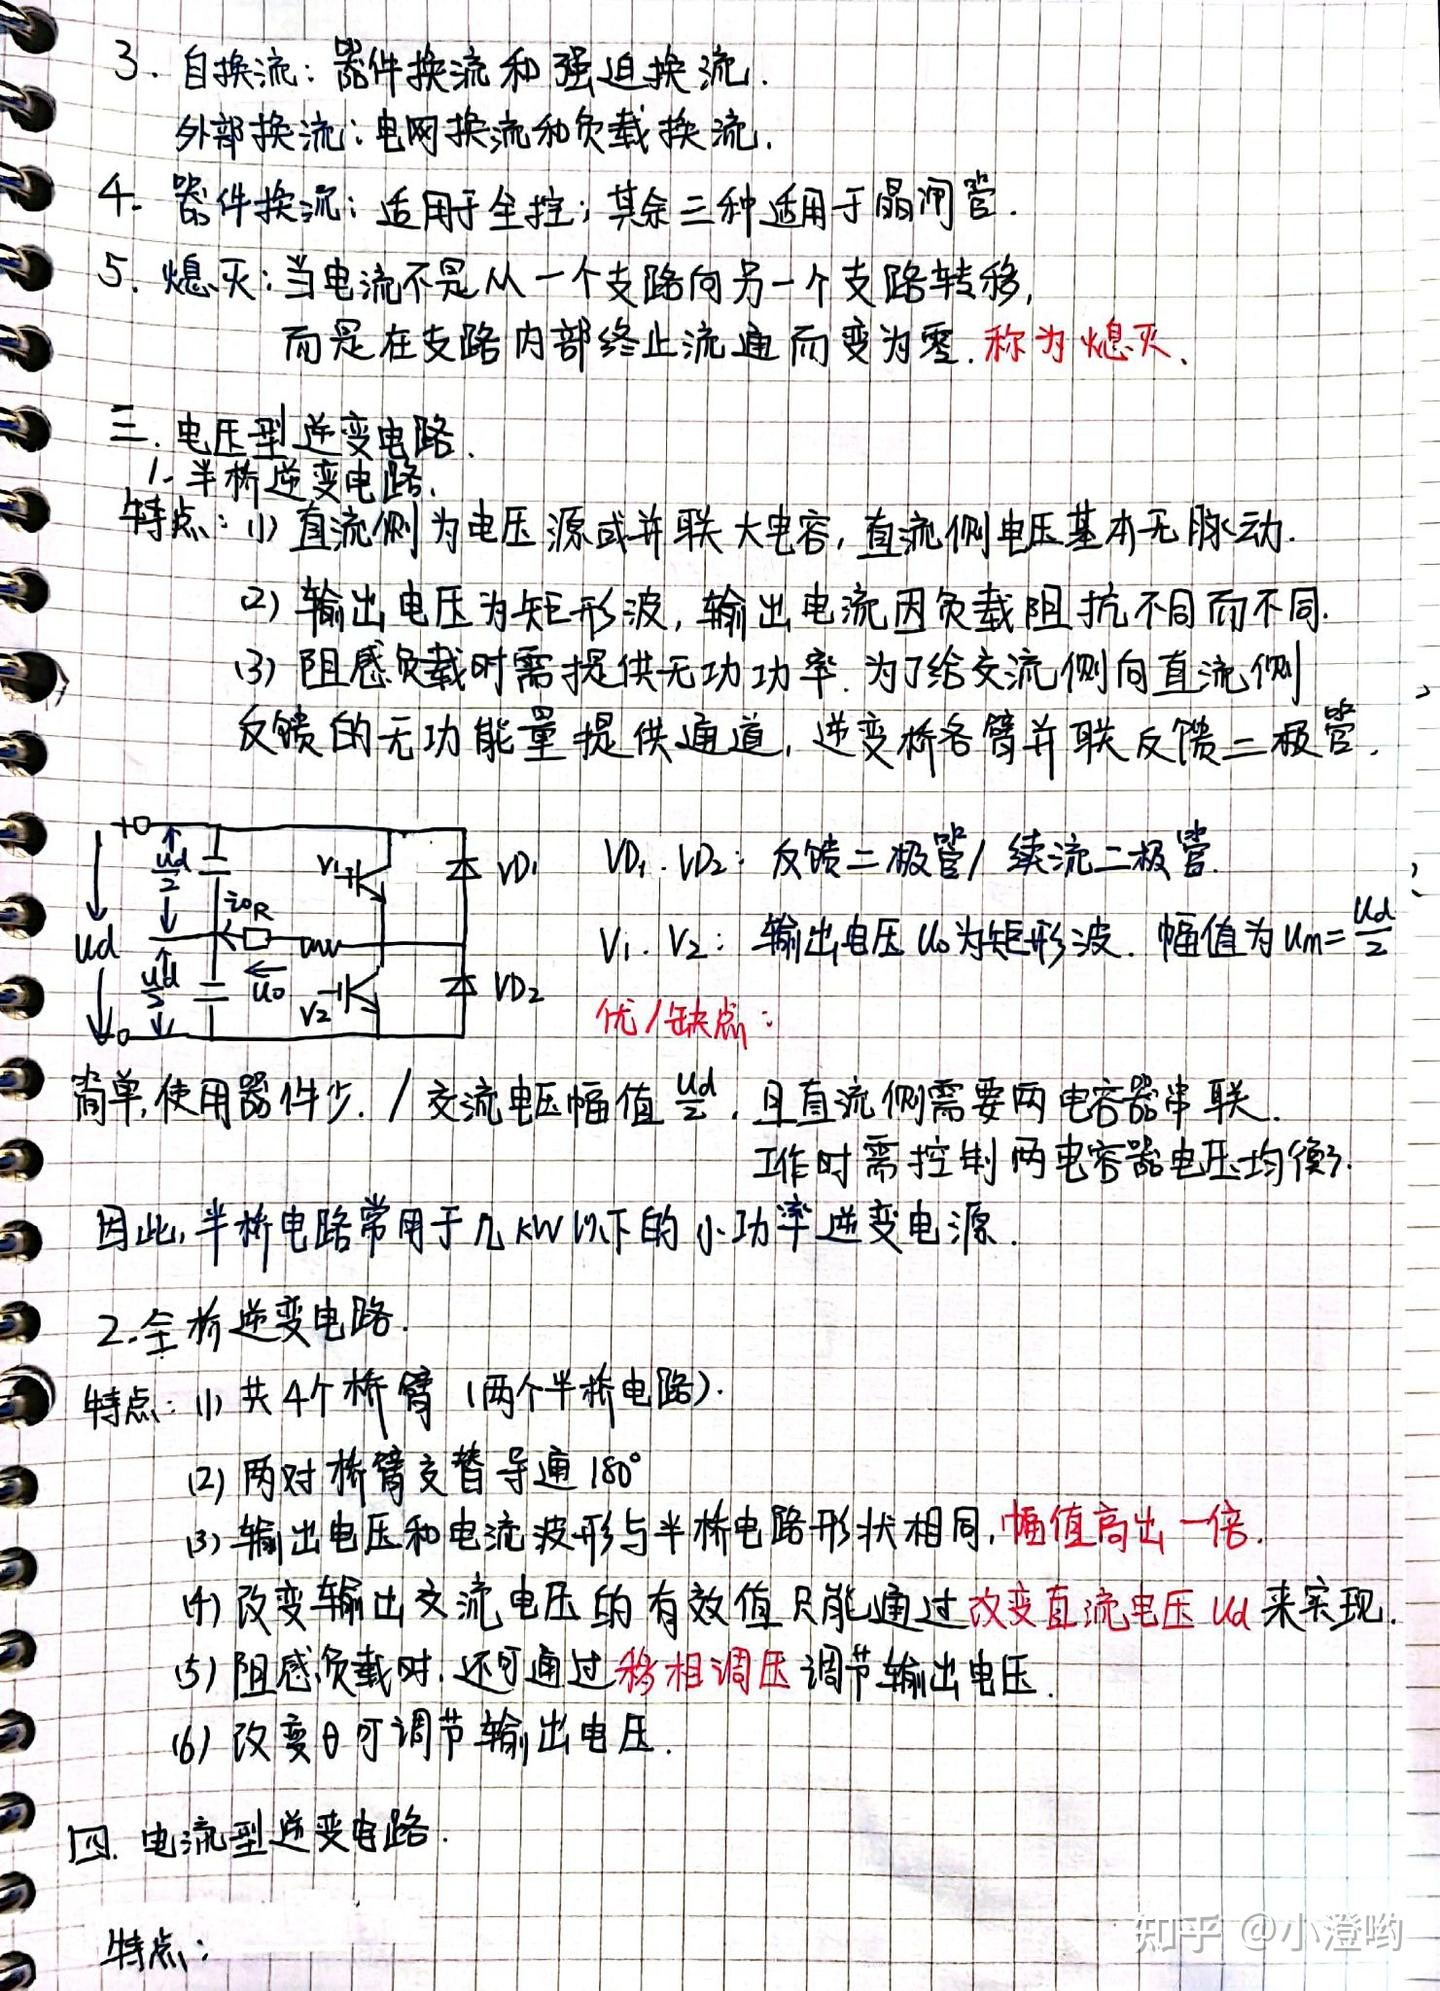 3. 自换流: 器件换流和强迫换流.
外部换流: 电网换流和负载换流.
4. 器件换流: 适用于全控; 其余三种适用于晶闸管.
5. 熄灭: 当电流不是从一个支路向另一个支路转移,
而是在支路内部终止流通而变为零. 称为熄灭、
三. 电压型逆变电路.
1. 半桥逆变电路.
特点: (1) 直流侧为电压源或并联大电容, 直流侧电压基本无脉动.
(2) 输出电压为矩形波, 输出电流因负载阻抗不同而不同.
(3) 阻感负载时需提供无功功率. 为了给交流侧向直流侧
反馈的无功能量提供通道, 逆变桥各臂并联反馈二极管.
+
Ud
Ud/2
Ud/2
io
R
uo
V1
V2
VD1
VD2
VD1. VD2: 反馈二极管/续流二极管.
V1. V2: 输出电压 Uo为矩形波. 幅值为 Um=Ud/2
优/缺点:
简单, 使用器件少. / 交流电压幅值 Ud/2, 且直流侧需要两电容器串联.
工作时需控制两电容器电压均衡.
因此, 半桥电路常用于几KW以下的小功率逆变电源.
2. 全桥逆变电路.
特点: (1) 共4个桥臂 (两个半桥电路).
(2) 两对桥臂交替导通180°
(3) 输出电压和电流波形与半桥电路形状相同, 幅值高出一倍.
(4) 改变输出交流电压的有效值只能通过改变直流电压Ud来实现.
(5) 阻感负载时, 还可通过移相调压调节输出电压.
(6) 改变θ可调节输出电压.
四. 电流型逆变电路.
特点:
知乎 @小澄哟